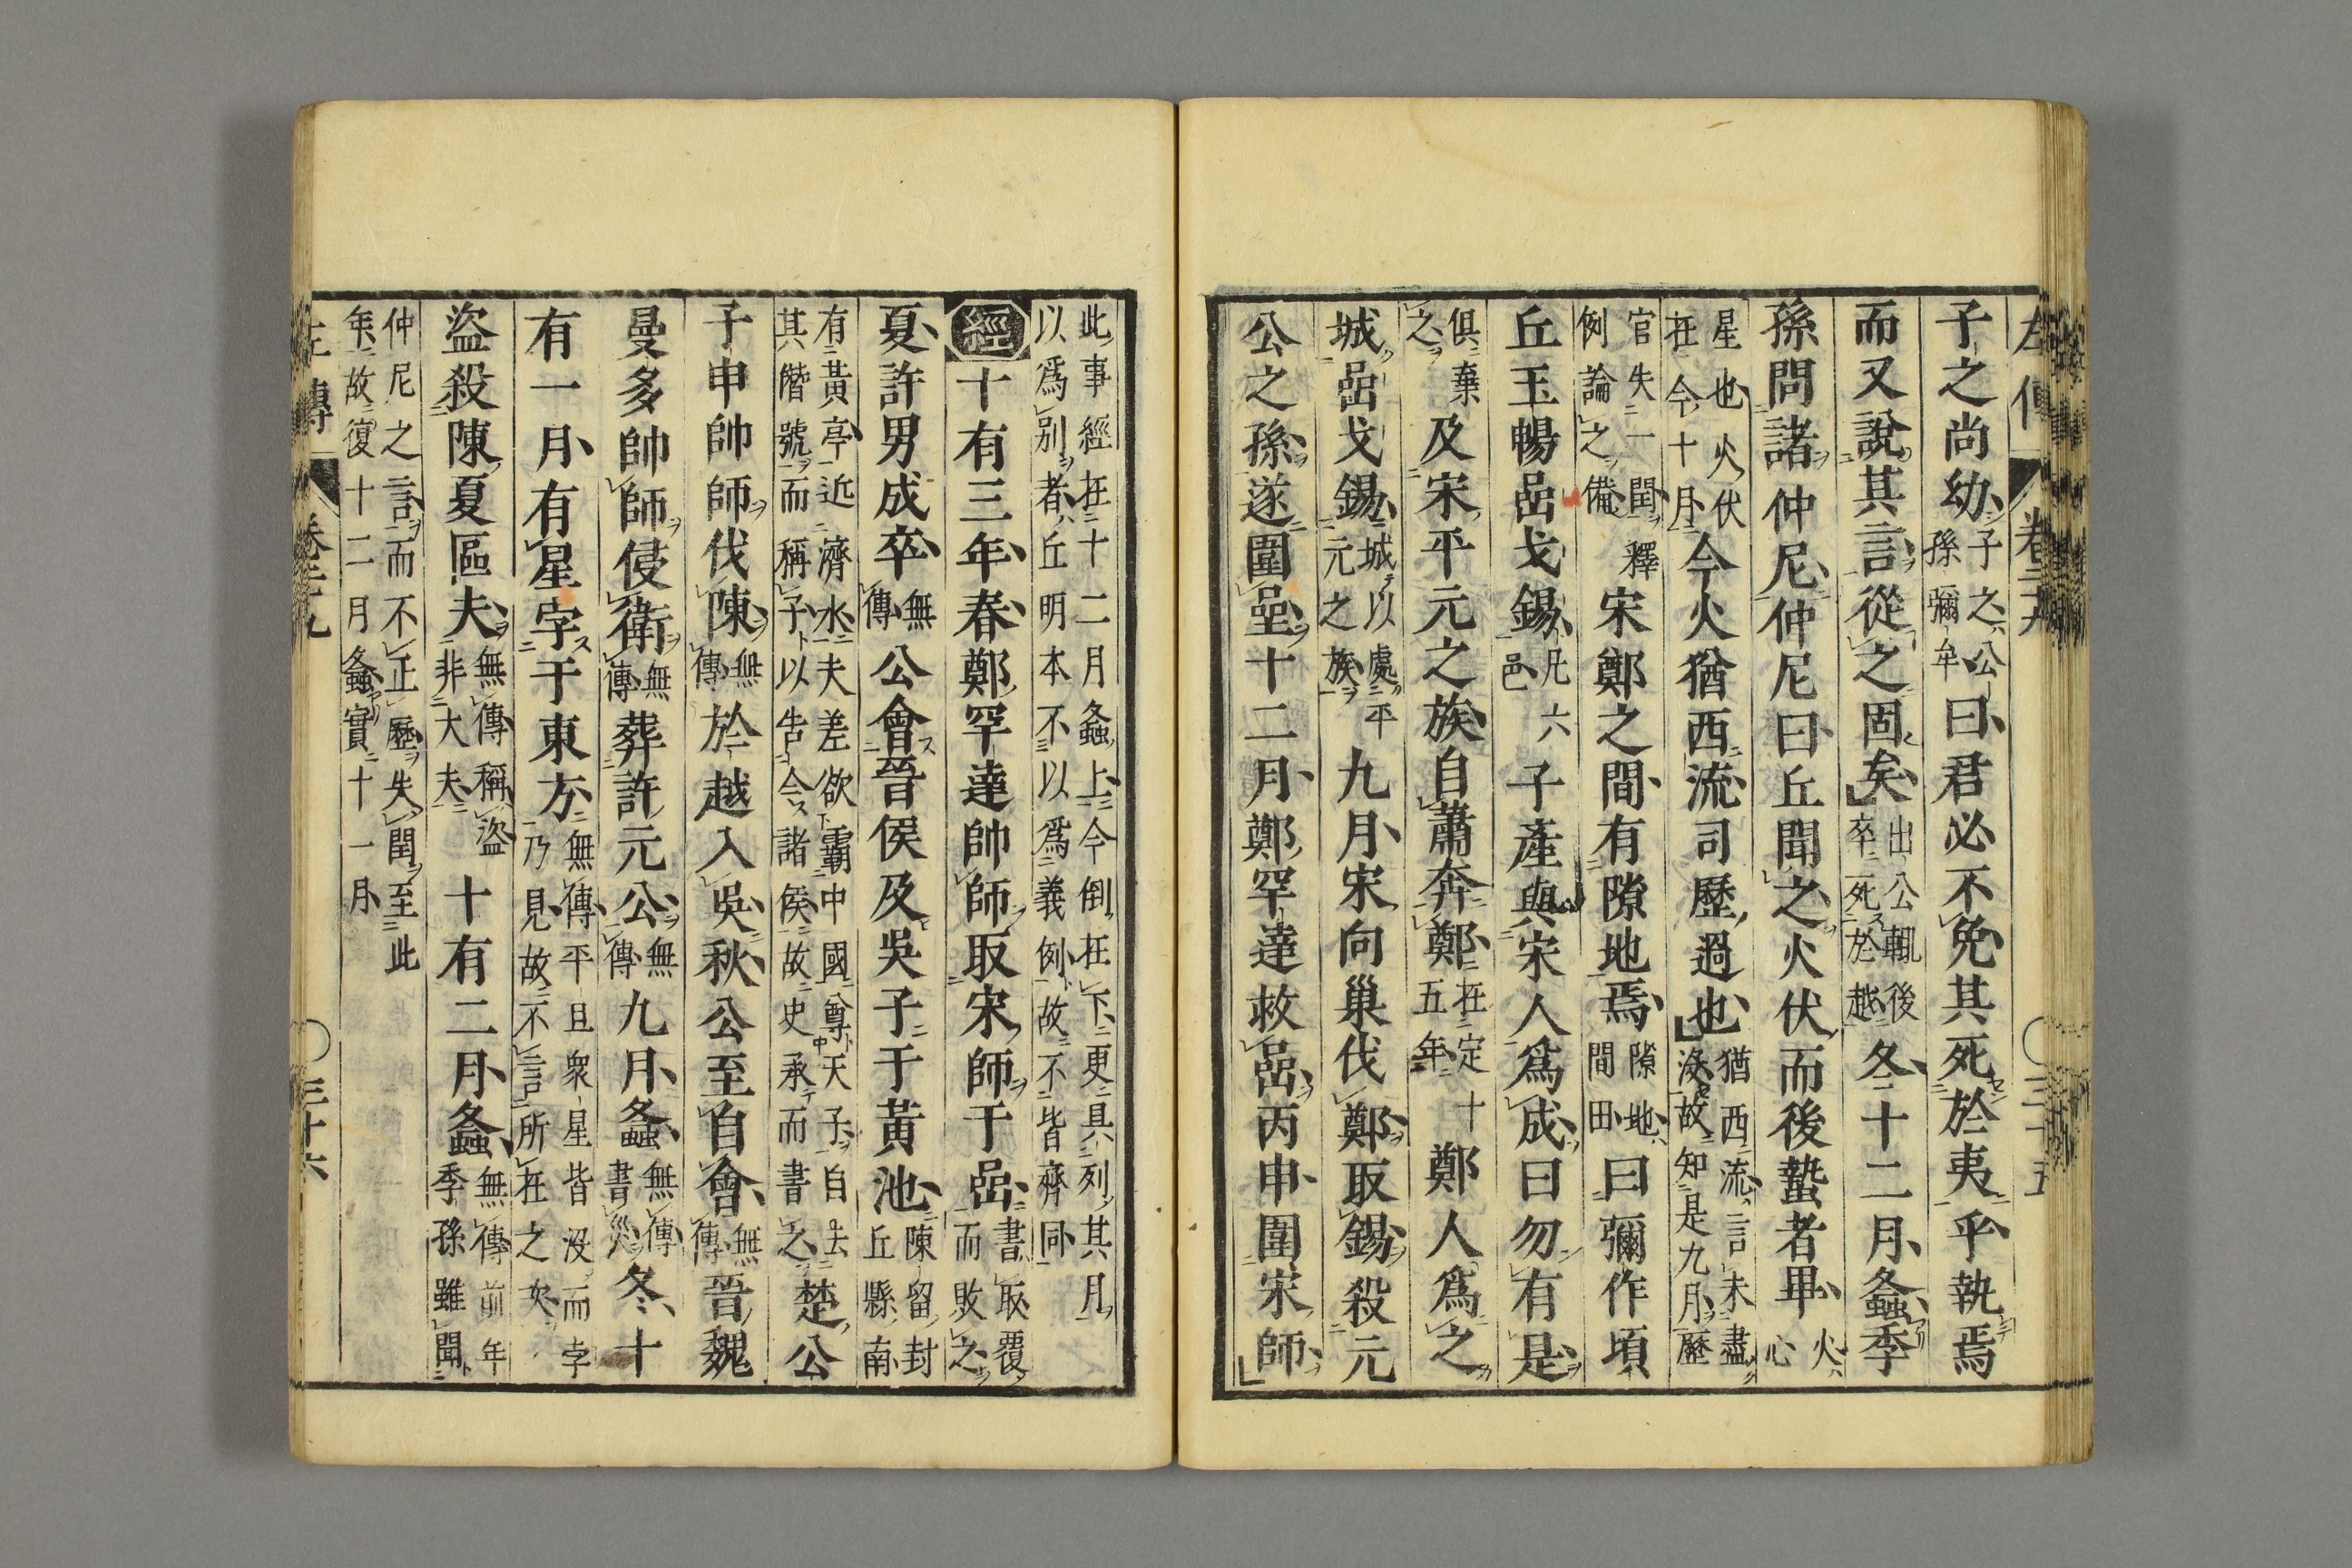 左傳 卷二十九 三十五
子之尚幼子之公孫彌牟曰君必不免其死於夷乎執焉
而又說其言從之固矣出公輒後卒死於越冬十二月螽季
孫問諸仲尼仲尼曰丘聞之火伏而後蟄者畢火心
星也火伏在今十月今火猶西流司歷過也猶西流言未盡沒故知是九月歷
官失一閏釋例論之備宋鄭之間有隙地焉隙地間田曰彌作頃
丘玉暢嵒戈錫凡六邑子產與宋人爲成曰勿有是
俱棄之及宋平元之族自蕭奔鄭在定十五年鄭人爲之
城嵒戈錫城以處平元之族九月宋向巢伐鄭取錫殺元
公之孫遂圍嵒十二月鄭罕達救嵒丙申圍宋師
此事經在十二月螽上今倒在下更具列其月以爲別者丘明本不以爲義例故不皆齊同
經十有三年春鄭罕達帥師取宋師于嵒書取覆而敗之
夏許男成卒無傳公會晉侯及吳子于黃池陳留封丘縣南
有黃亭近濟水夫差欲霸中國尊天子自去其僭號而稱子以告令諸侯故史承而書之楚公
子申帥師伐陳無傳於越入吳秋公至自會無傳晉魏
曼多帥師侵衛無傳葬許元公無傳九月螽無傳書災冬十
有一月有星孛于東方無傳平旦衆星皆沒而孛乃見故不言所在之次
盜殺陳夏區夫無傳稱盜非大夫十有二月螽無傳前年季孫雖聞
仲尼之言而不正歷失閏至此年故復十二月螽實十一月
左傳 卷二十九 三十六